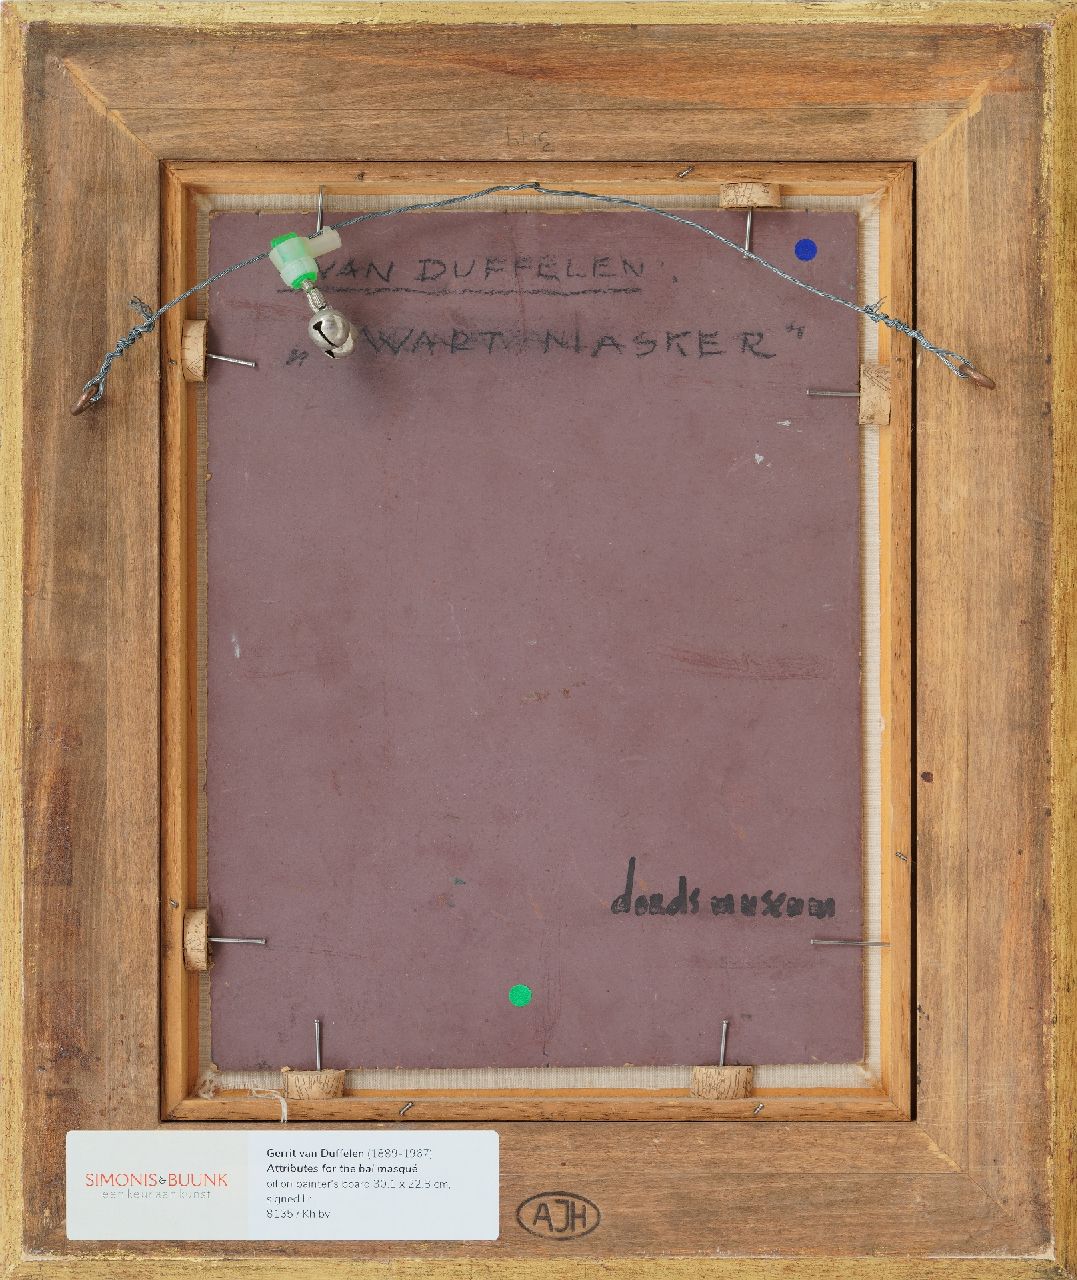 VAN DUFFELEN.
"ZWART MASKER"
doodsmuseum
SIMONIS&BUUNK
een keur aan kunst
Gerrit van Duffelen (1889-1967)
Attributes for the bal masqué
oil on painter's board 30.1 x 22.8 cm,
signed l.r.
AJH